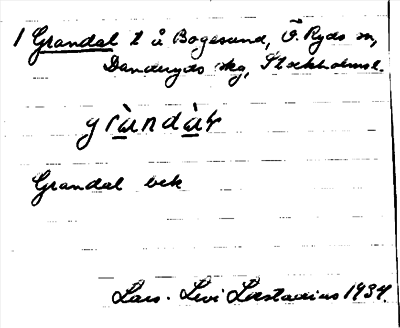 1 Grandal t å Bogesund, Ö. Ryds sn,
Danderyds skg, Stockholms l.
gràndàr
Grandal bek
Lars-Levi Læstadius 1934.